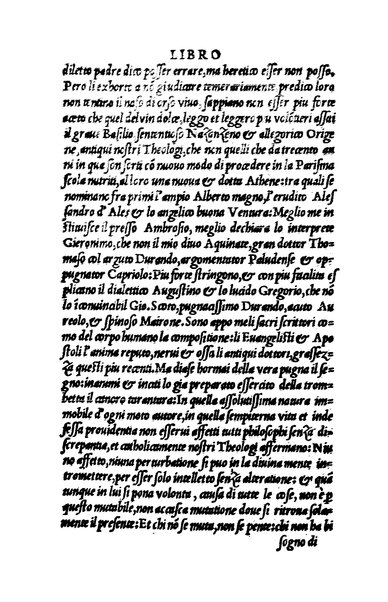 LIBRO
diletto padre dico posser errare, ma heretico esser non posso.
Però li exhorto a nō giudicare temerariamente, predico loro
non tentino il naso di orso vivo, sappiano non esser piu forte
aceto che quel del vin dolce, leggo et leggero pu volētieri assai
il graue Basilio sententioso Nazonzeno & allegorico Orige
ne, antiqui nostri Theologi, che non quelli che da trecento an
ni in qua son scriti cō nuouo modo di procedere in la Parisina
scola nutriti, al loro una nuoua & dotta Athene: tra quali se
nominanc fra primi l'ampio Alberto magno, l'erudito Ales
sandro d'Ales & lo angelico buona Ventura: Meglio me in
stituisce il presso Ambrosio, meglio dechiara lo interprete
Gieronimo, che non il mio diuo Aquinate, gran dottor Tho
maso col arguto Durando, argomentutor Paludense & op
pugnator Capriolo: Piu forte stringono, & con piu facilita es
plicano il dialettico Augustino & lo lucido Gregorio, che nō
lo icōuinabil Gio. Scoto, pugnacissimo Durando, acuto Au
reolo, & spinoso Mairone. Sono appo me li sacri scrittori co
mo del corpo humano la compositione: li Euangelisti & Apo
stoli l'anima reputo, nerui & ossa li antiqui dottori, grassez
za questi piu recenti. Ma diase hormai della vera pugna il se
gno: inanimi & inciti lo gia preparato essercito della trom
betta il cancro tarantara: In quella assolutissima natura im
mobile d'ogni moto autore, in quella sempiterna vita et inde
fessa prouidentia non esserui affetti tutti philosophi senza di
screpantia, et catholicamente nostri Theologi affermano: Ni
uno affetto, niuna perturbatione si puo in la diuina mente in
tromettere, per esser solo intelletto senza alteratione: & quā
tunque in lui si pona volontà, causa di tutte le cose, non è p
questo mutabile, non accasca mutatione doue si ritroua sola-
mente il presente: Et chi nō se muta, non se pente: chi non ha bi
sogno di